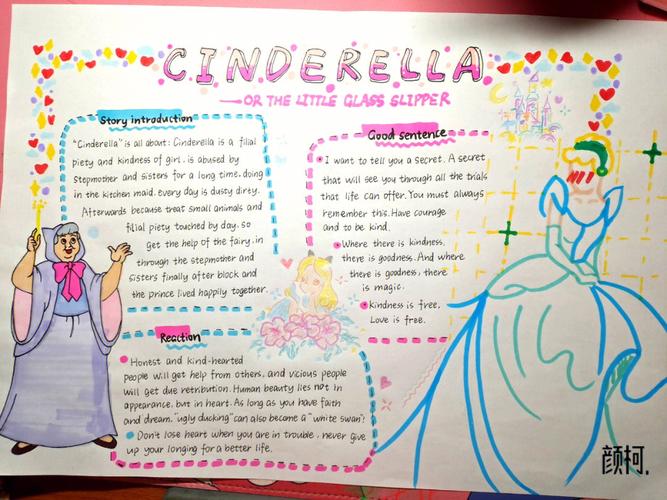 CINDERELLA
—OR THE LITTLE GLASS SLIPPER
Story introduction
"Cinderella" is all about: Cinderella is a filial
piety and kindness of girl, is abused by
stepmother and sisters for a long time, doing
in the kitchen maid, every day is dusty dirty.
Afterwards because treat small animals and
filial piety touched by day, so
get the help of the fairy, in
through the stepmother and
sisters finally after block and
the prince lived happily together.
Good sentence
I want to tell you a secret. A secret
that will see you through all the trials
that life can offer. You must always
remember this. Have courage
and to be kind.
Where there is kindness,
there is goodness. And where
there is goodness, there
is magic.
kindness is free,
Love is free.
Reaction
Honest and kind-hearted
people will get help from others, and vicious people
will get due retribution. Human beauty lies not in
appearance, but in heart. As long as you have faith
and dream, "ugly ducking" can also become a "white swan".
Don't lose heart when you are in trouble, never give
up your longing for a better life.
颜柯.